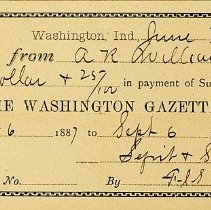 Washington, Ind, June
from A R William
ollar & 25/100 in payment of Su
HE WASHINGTON GAZETT
6 1887 to Sept 6
No. By